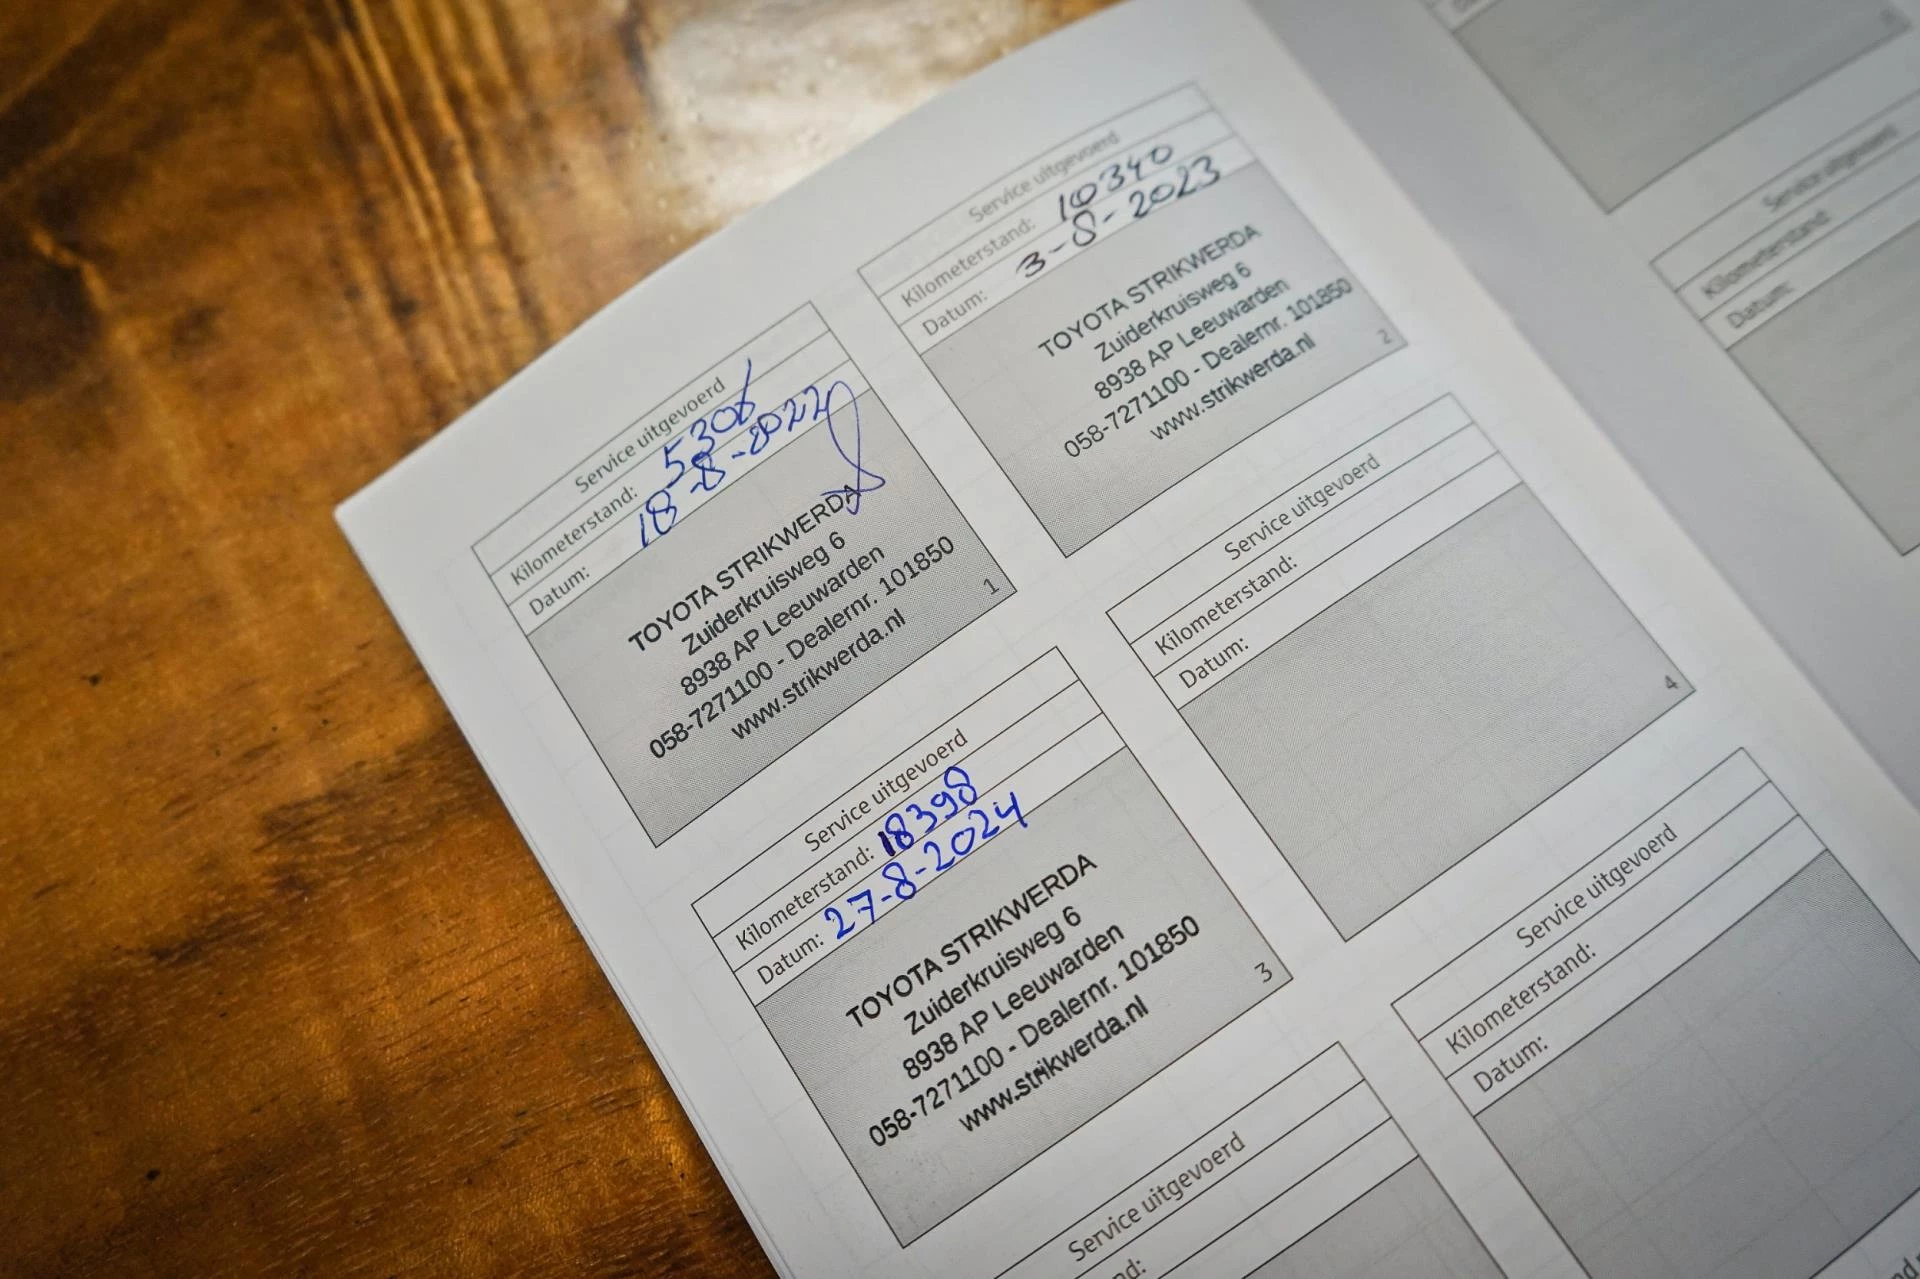 Service uitgevoerd
Kilometerstand: 5306
Datum: 18-8-2022
TOYOTA STRIKWERDA
Zuiderkruisweg 6
8938 AP Leeuwarden
058-7271100 - Dealernr. 101850
www.strikwerda.nl
1
Service uitgevoerd
Kilometerstand: 10340
Datum: 3-8-2023
TOYOTA STRIKWERDA
Zuiderkruisweg 6
8938 AP Leeuwarden
058-7271100 - Dealernr. 101850
www.strikwerda.nl
2
Service uitgevoerd
Kilometerstand: 18398
Datum: 27-8-2024
TOYOTA STRIKWERDA
Zuiderkruisweg 6
8938 AP Leeuwarden
058-7271100 - Dealernr. 101850
www.strikwerda.nl
3
Service uitgevoerd
Kilometerstand:
Datum:
4
Service uitgevoerd
Service uitgevoerd
Kilometerstand:
Datum:
Service uitgevoerd
Kilometerstand:
Datum: